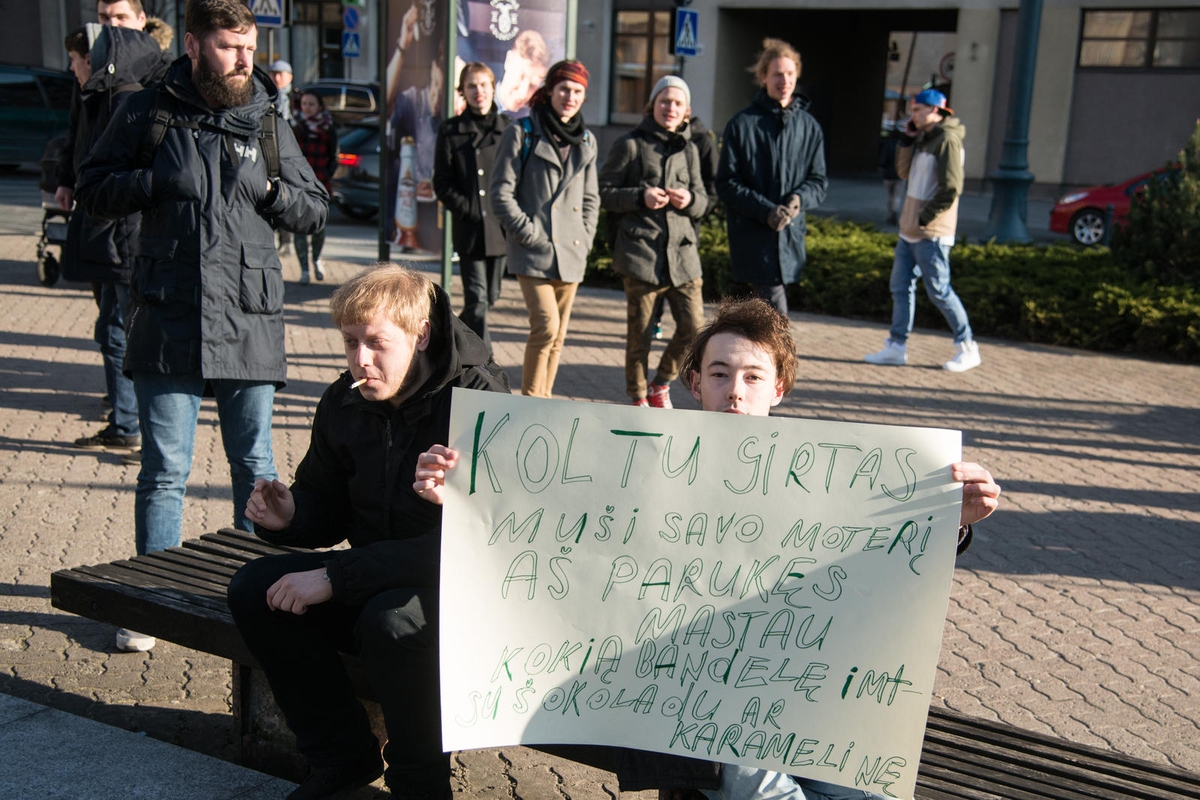 KOL TU GIRTAS
MUŠI SAVO MOTERĮ
AŠ PARUKĘS
MĄSTAU
KOKIĄ BANDELĘ IMT
SU ŠOKOLADU AR
KARAMELINĘ